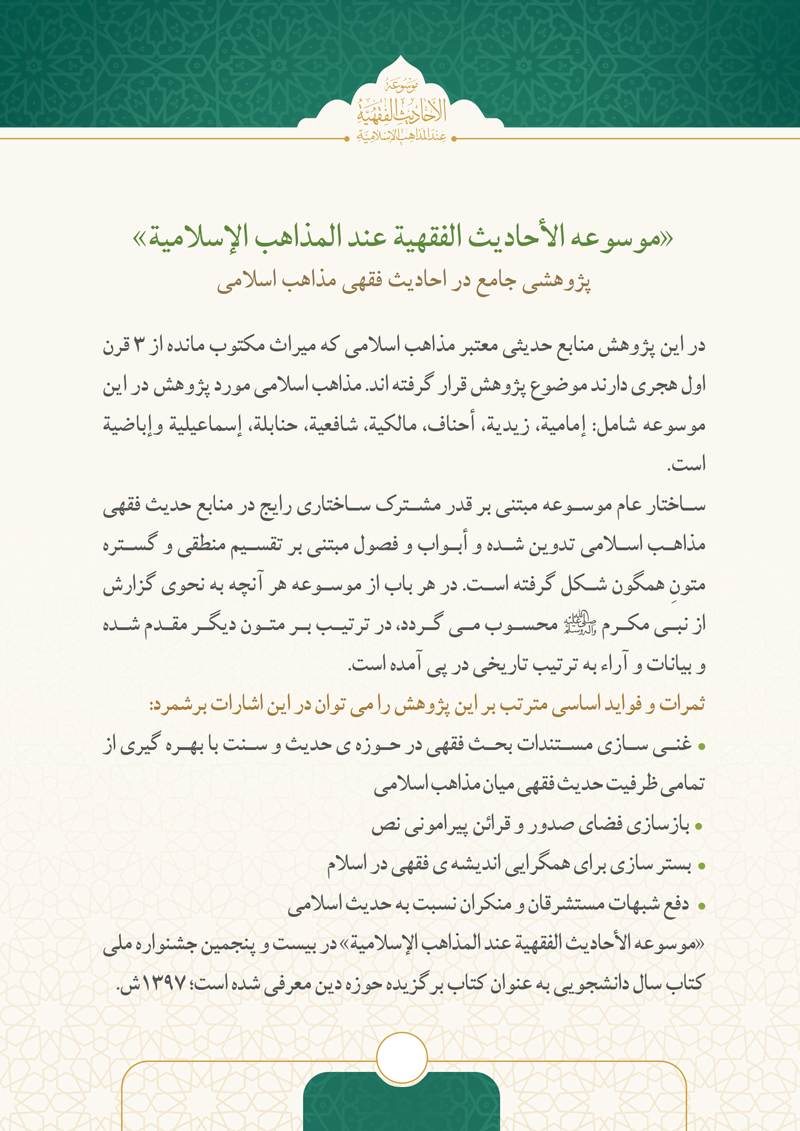 موسوعة
الأحاديث الفقهية
عند المذاهب الإسلامية
«موسوعه الأحاديث الفقهية عند المذاهب الإسلامية»
پژوهشی جامع در احادیث فقهی مذاهب اسلامی
در این پژوهش منابع حدیثی معتبر مذاهب اسلامی که میراث مکتوب مانده از ۳ قرن
اول هجری دارند موضوع پژوهش قرار گرفته اند. مذاهب اسلامی مورد پژوهش در این
موسوعه شامل: إمامية، زيدية، أحناف، مالكية، شافعية، حنابلة، إسماعيلية وإباضية
است.
ساختار عام موسوعه مبتنی بر قدر مشترک ساختاری رایج در منابع حدیث فقهی
مذاهب اسلامی تدوین شده و أبواب و فصول مبتنی بر تقسیم منطقی و گستره
متونِ همگون شکل گرفته است. در هر باب از موسوعه هر آنچه به نحوی گزارش
از نبی مکرم ﷺ محسوب می گردد، در ترتیب بر متون دیگر مقدم شده
و بیانات و آراء به ترتیب تاریخی در پی آمده است.
ثمرات و فواید اساسی مترتب بر این پژوهش را می توان در این اشارات برشمرد:
• غنی سازی مستندات بحث فقهی در حوزه ی حدیث و سنت با بهره گیری از
تمامی ظرفیت حدیث فقهی میان مذاهب اسلامی
• بازسازی فضای صدور و قرائن پیرامونی نص
• بستر سازی برای همگرایی اندیشه ی فقهی در اسلام
• دفع شبهات مستشرقان و منکران نسبت به حدیث اسلامی
«موسوعه الأحاديث الفقهية عند المذاهب الإسلامية» در بیست و پنجمین جشنواره ملی
کتاب سال دانشجویی به عنوان کتاب برگزیده حوزه دین معرفی شده است؛ ۱۳۹۷ش.